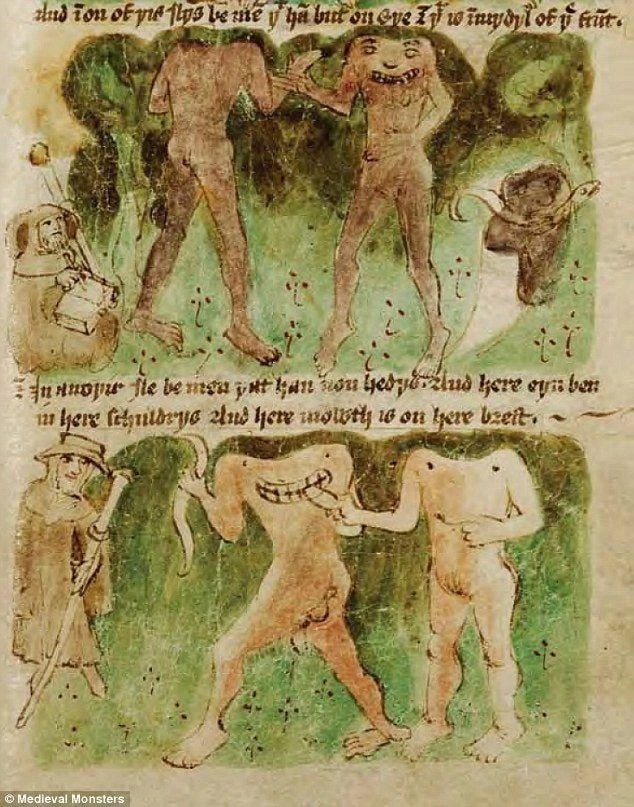 And in on of þis ylys be mē yͭ hā but on eye & yͭ is ī mydyl of yͤ frūt.
In anoyir yle be men yat han non hedys. And here eyn ben
in here schuldrys And here mowth is on here brest.
© Medieval Monsters